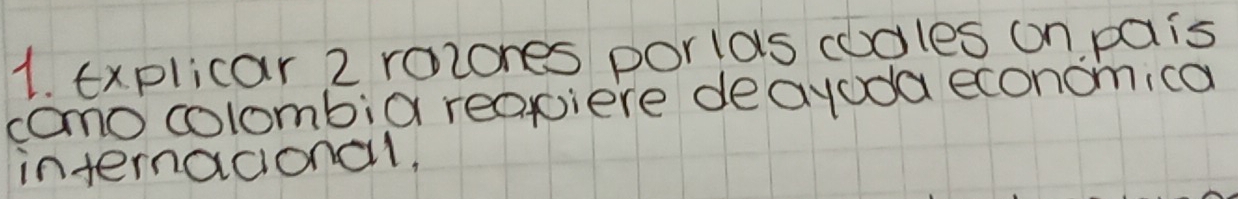 1. Explicar 2 razones por las cuales un país
como colombia requiere de ayuda económica
internacional.